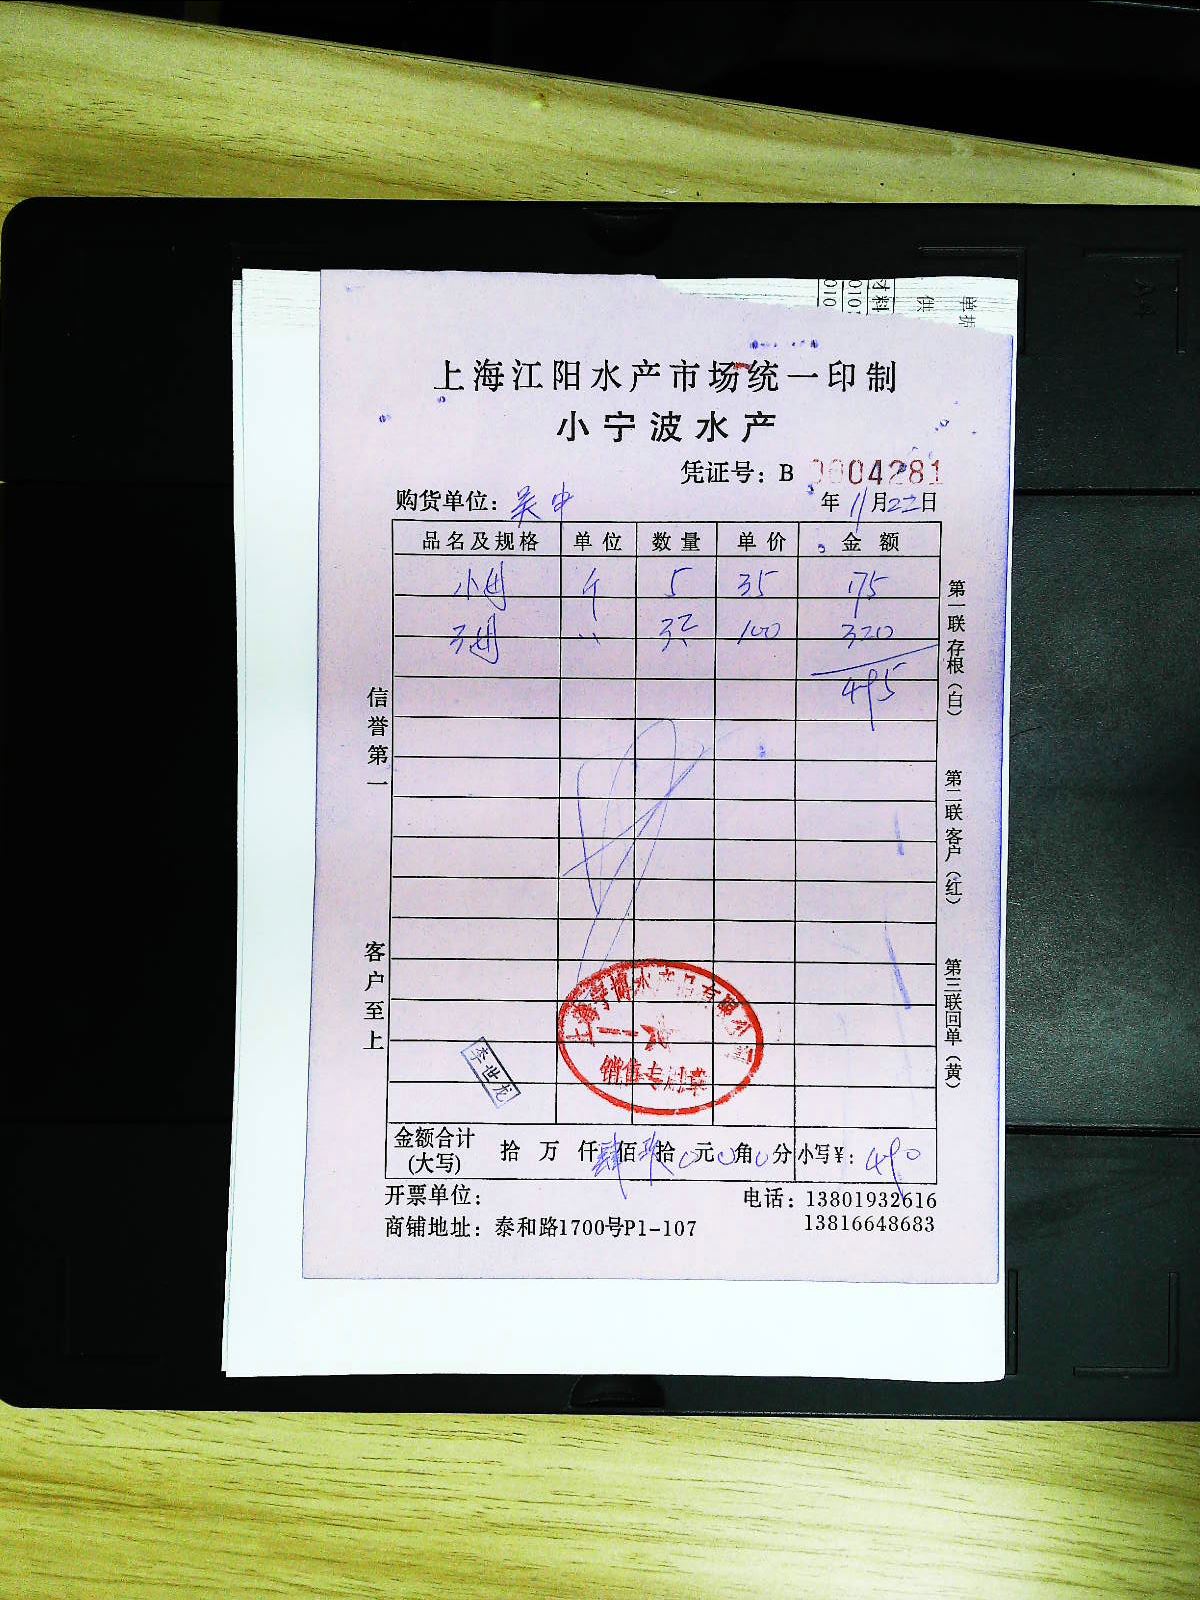 材料
供
单据
上海江阳水产市场统一印制
小宁波水产
凭证号：B 0004281
购货单位：吴中 年11月22日
品名及规格 单位 数量 单价 金额
斤 5 35 175
〃 100 320
495
信誉第一
客户至上
第一联存根（白）
第二联客户（红）
第三联回单（黄）
李世龙
销售专用章
金额合计(大写) 拾 万 仟肆佰玖拾0元0角0分 小写¥：490
开票单位： 电话：13801932616
商铺地址：泰和路1700号P1-107 13816648683